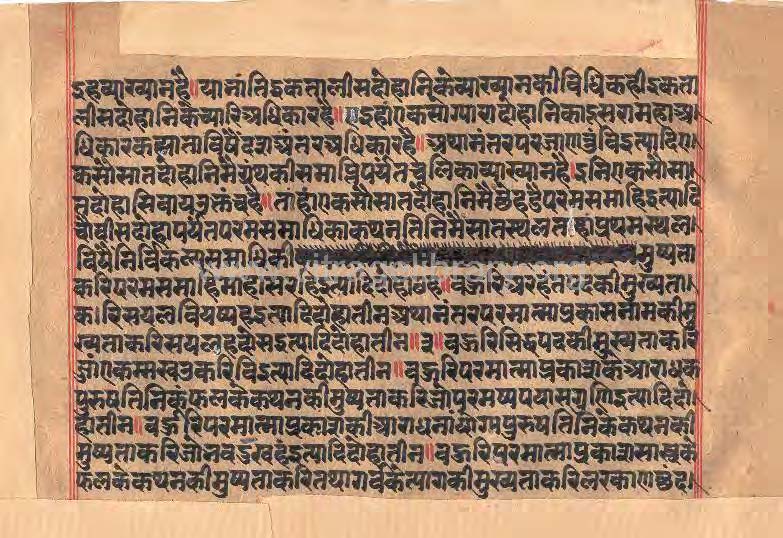 इहव्याख्यानहै॥यानांतिइकतालीसदोहानिकेव्याख्यानकीविधिकहीइकता
लीसदोहानिकैच्यारिअधिकारहै॥ इहांएकसौग्यारादोहानिका महाअ
धिकार है॥अथानंतरपरजाणंतुविइत्यादिए
कसौसातदोहानिमैग्रंथकीसमाप्तिपर्यंतचूलिकाव्याख्यानहै॥इनिएकसौसा
तदोहासिवायप्रक्षेपकहै॥तहांएकसौसातदोहानिमैछेहडैपरमसमाहिइत्यादि
चौवीसदोहापर्यंतपरमसमाधिकाकथनतिनिमैसातस्थलतहांप्रथमस्थल
विषैनिर्विकल्पसमाधिकी मुष्यता
करिपरमसमाहिमहासरहिइत्यादिदोहा है॥बहुरिअरहंतपदकीमुख्यता
करिसयलवियप्पहइत्यादिदोहातीनअथानंतरपरमात्माप्रकासनामकीमु
ख्यताकरिसयलहंदोसइत्यादिदोहातीन॥ ॥बहुरिसिद्धपदकीमुख्यताकरि
झांणेंकम्मखउकरिविइत्यादिदोहातीन॥बहुरिपरमात्माप्रकाशकेआराधक
पुरुषतिनिकैफलकेकथनकीमुष्यताकरिजेपरमप्पपयासमुणिइत्यादिदो
हातीन॥बहुरिपरमात्माप्रकाशकीआराधनायोग्यपुरुषतिनिकैकथनकी
मुष्यताकरिजेभवदुखहंइत्यादिदोहातीन॥बहुरिपरमात्माप्रकाशसास्त्रके
फलकेकथनकीमुष्यताकरितथागर्वकेत्यागकीमुख्यताकरिलरकाणछंद
www.jainelibrary.org